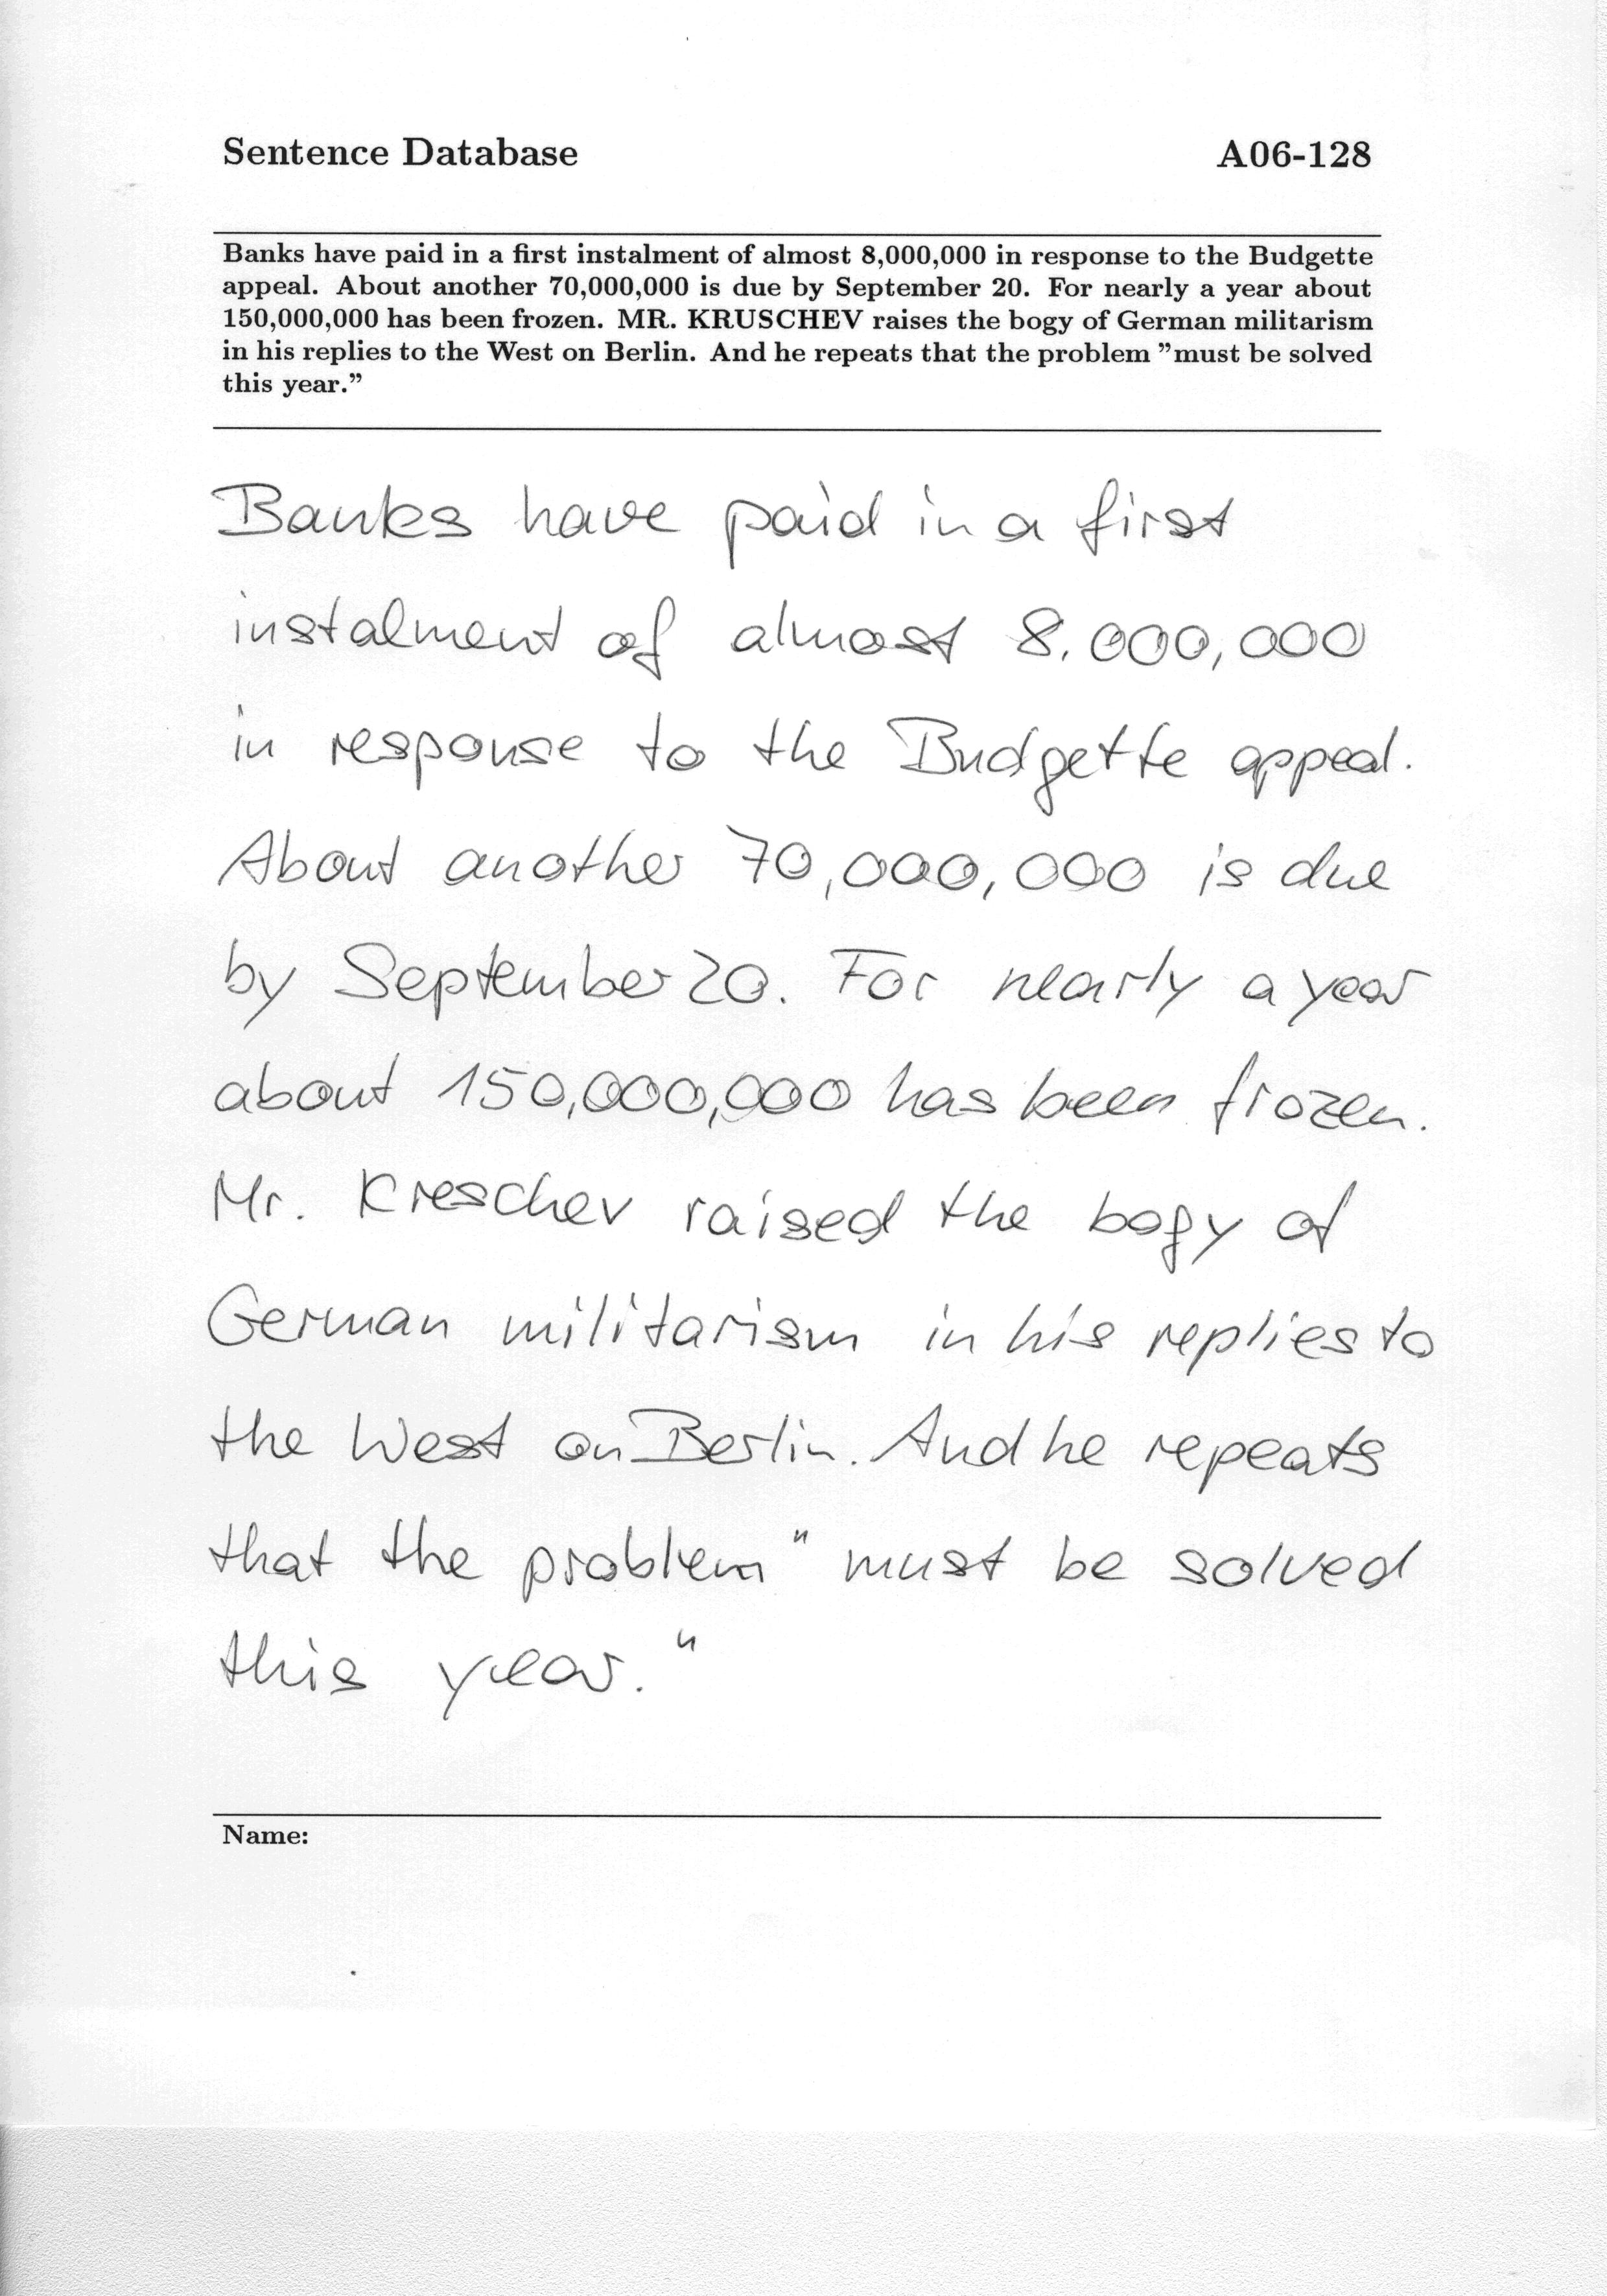 Sentence Database A06-128
Banks have paid in a first instalment of almost 8,000,000 in response to the Budgette
appeal. About another 70,000,000 is due by September 20. For nearly a year about
150,000,000 has been frozen. MR. KRUSCHEV raises the bogy of German militarism
in his replies to the West on Berlin. And he repeats that the problem ”must be solved
this year.”
Banks have paid in a first
instalment of almost 8.000,000
in response to the Budgette appeal.
About another 70,000,000 is due
by September 20. For nearly a year
about 150,000,000 has been frozen.
Mr. Kreschev raised the bogy of
German militarism in his replies to
the West on Berlin. And he repeats
that the problem "must be solved
this year."
Name: